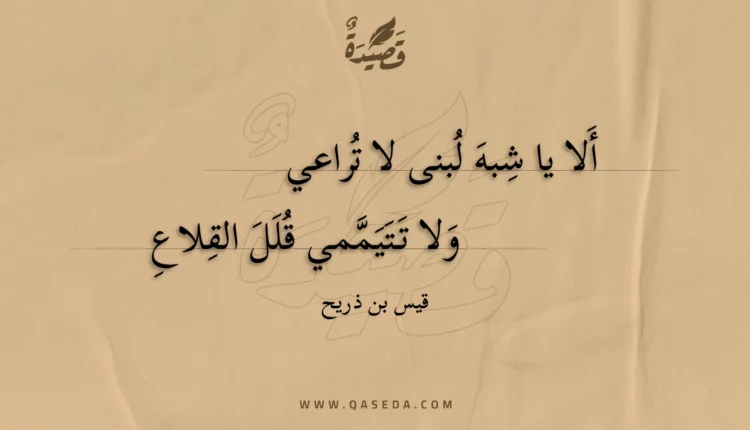 قَصِيْدَةٌ
أَلا يا شِبهَ لُبنى لا تُراعي
وَلا تَتَيَمَّمي قُلَلَ القِلاعِ
قيس بن ذريح
WWW.QASEDA.COM